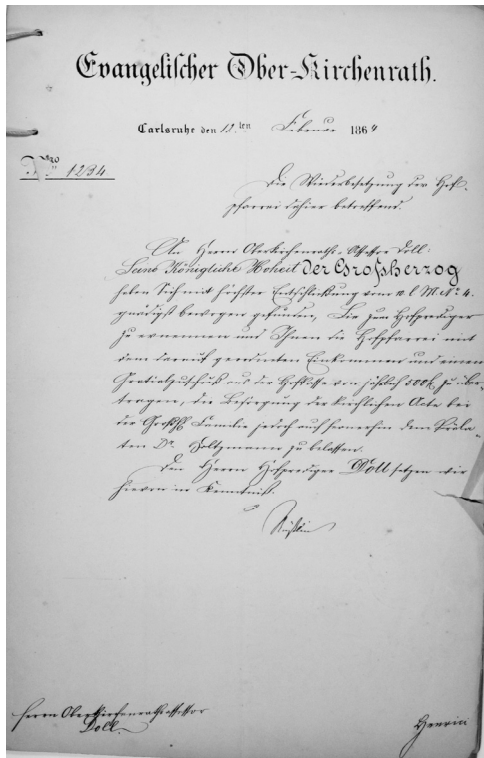 Evangelischer Ober-Kirchenrath.
Carlsruhe den 12.ten Februar 1864
Nro 1234.
Die Wiederbesetzung der Hof-
pfarrei dahier betreffend.
An Herrn Oberkirchenraths-Assessor Doll.
Seine Königliche Hoheit der Grossherzog
haben Sich mit höchster Entschließung vom 10. l. M. No 4.
gnädigst bewogen gefunden, Sie zum Hofprediger
zu ernennen und Ihnen die Hofpfarrei mit
dem darauf geordneten Einkommen und einem
Gratialzuschuß aus der Hofkasse von jährlich 500 fl. zu über-
tragen, die Besorgung der kirchlichen Acte bei
der Großh. Familie jedoch auch fernerhin dem Präla-
ten Dr. Holtzmann zu belassen.
Den Herrn Hofprediger Doll setzen wir
hievon in Kenntniß.
Nüßlin
Herrn Oberkirchenrathsassessor
Doll.